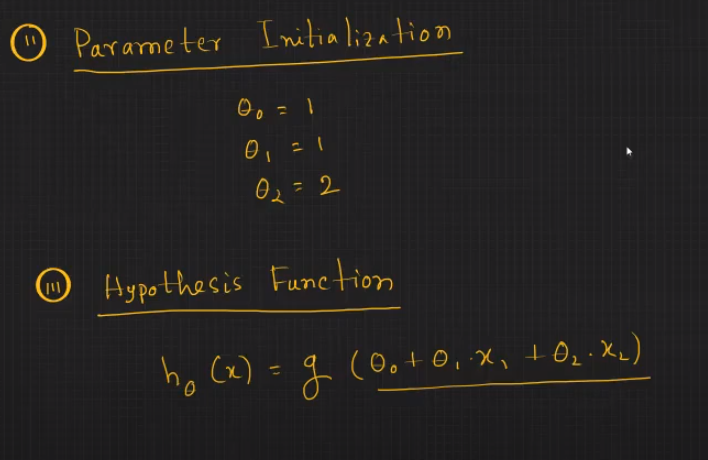 (ii) Parameter Initialization
θ₀ = 1
θ₁ = 1
θ₂ = 2
(iii) Hypothesis Function
h_θ (x) = g (θ₀ + θ₁ . x₁ + θ₂ . x₂)